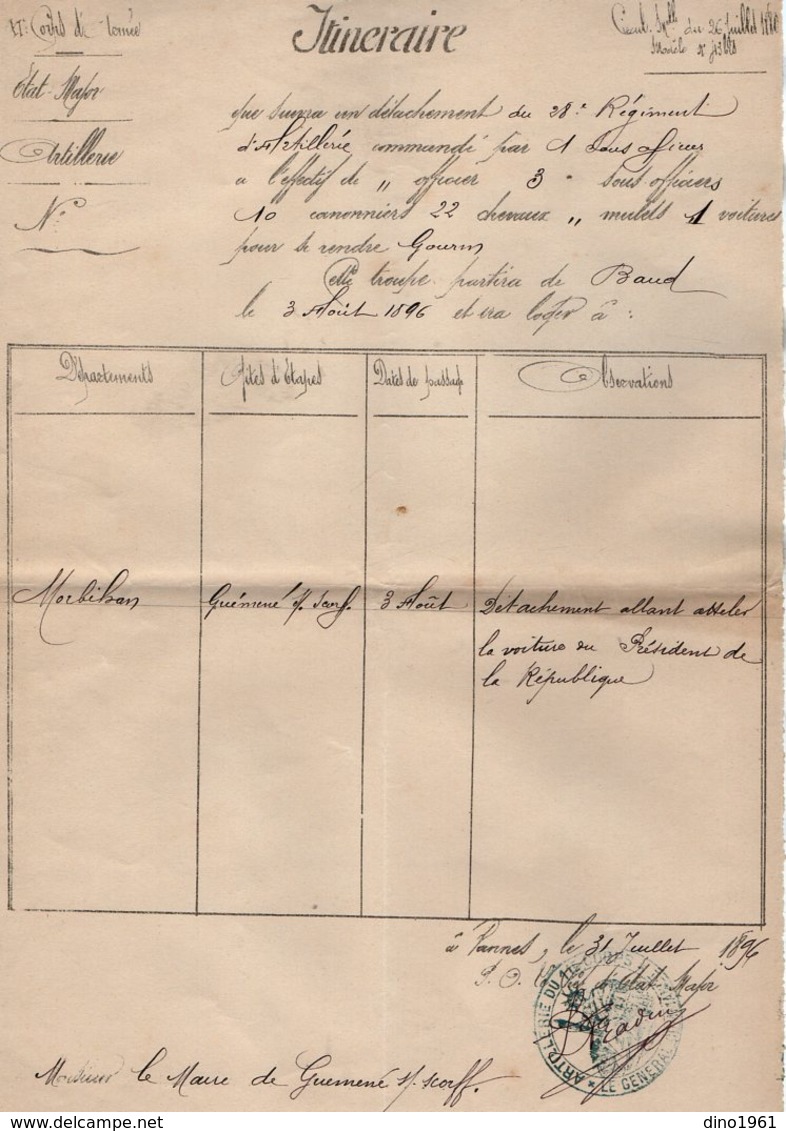 XIe Corps de l'armée
Itineraire
Circul. Mlle du 26 Juillet 18
Modèle No
Etat-Major
Artillerie
No
que suivra un détachement du 28e Régiment
d'Artillerie commandé par 1 sous officier
a l'effectif de „ officier 3 " sous officiers
10 canonniers 22 chevaux „ mulets 1 voitures
pour se rendre Gourin
Cette troupe partira de Baud
le 3 Août 1896 et ira loger à :
Départements
Gîtes d'Etapes
Dates de passage
Observations
Morbihan
Guémené s/ Scorf.
3 Août
Détachement allant atteler
la voiture du Président de
la République
à Vannes, le 31 Juillet 1896
P. O. d'Etat Major
ARTILLERIE DU 11e CORPS
LE GENERAL
Monsieur le Maire de Guemené s/ scorff.
dino1961